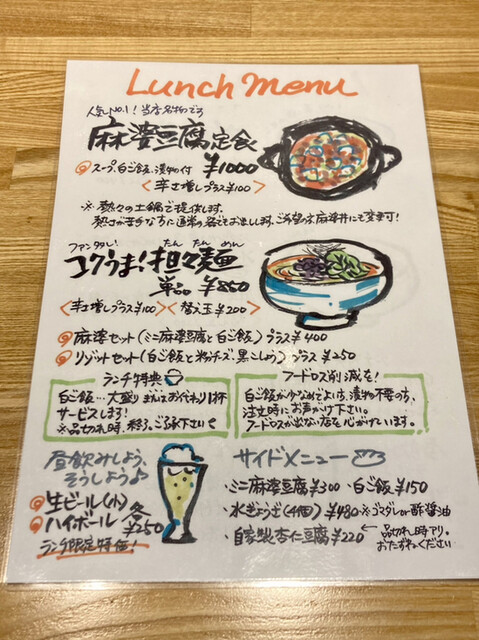 Lunch Menu
人気No.1！当店名物です
麻婆豆腐定食
スープ、白ご飯、漬物付 ¥1000
<辛さ増しプラス¥100>
※熱々の土鍋で提供します。
熱さが苦手な方に通常の器でもお出しします。ご希望の方麻婆丼にも変更可！
ファンタレ！ たん たん めん
コクうま！担々麺
単品 ¥850
<辛さ増しプラス¥100> <替え玉¥200>
麻婆セット（ミニ麻婆豆腐と白ご飯）プラス¥400
リゾットセット（白ご飯と粉チーズ・黒こしょう）プラス¥250
ランチ特典
白ご飯…大盛りまたはおかわり1杯
サービスします！
※品切れ時、終了。ご了承下さい
フードロス削減を！
白ご飯が少なめでよい方、漬物不要の方、
注文時にお声がけ下さい。
フードロスが出ない店を心がけています。
昼飲みしよう、
そうしよう♪
生ビール（小）
ハイボール 各¥250
ランチ限定特価！
サイドメニュー
・ミニ麻婆豆腐¥300 ・白ご飯¥150
・水ぎょうざ（4個）¥480 ※ゴマダレor酢醤油
・自家製杏仁豆腐¥220 ← 品切れ時アリ。
おたずねください